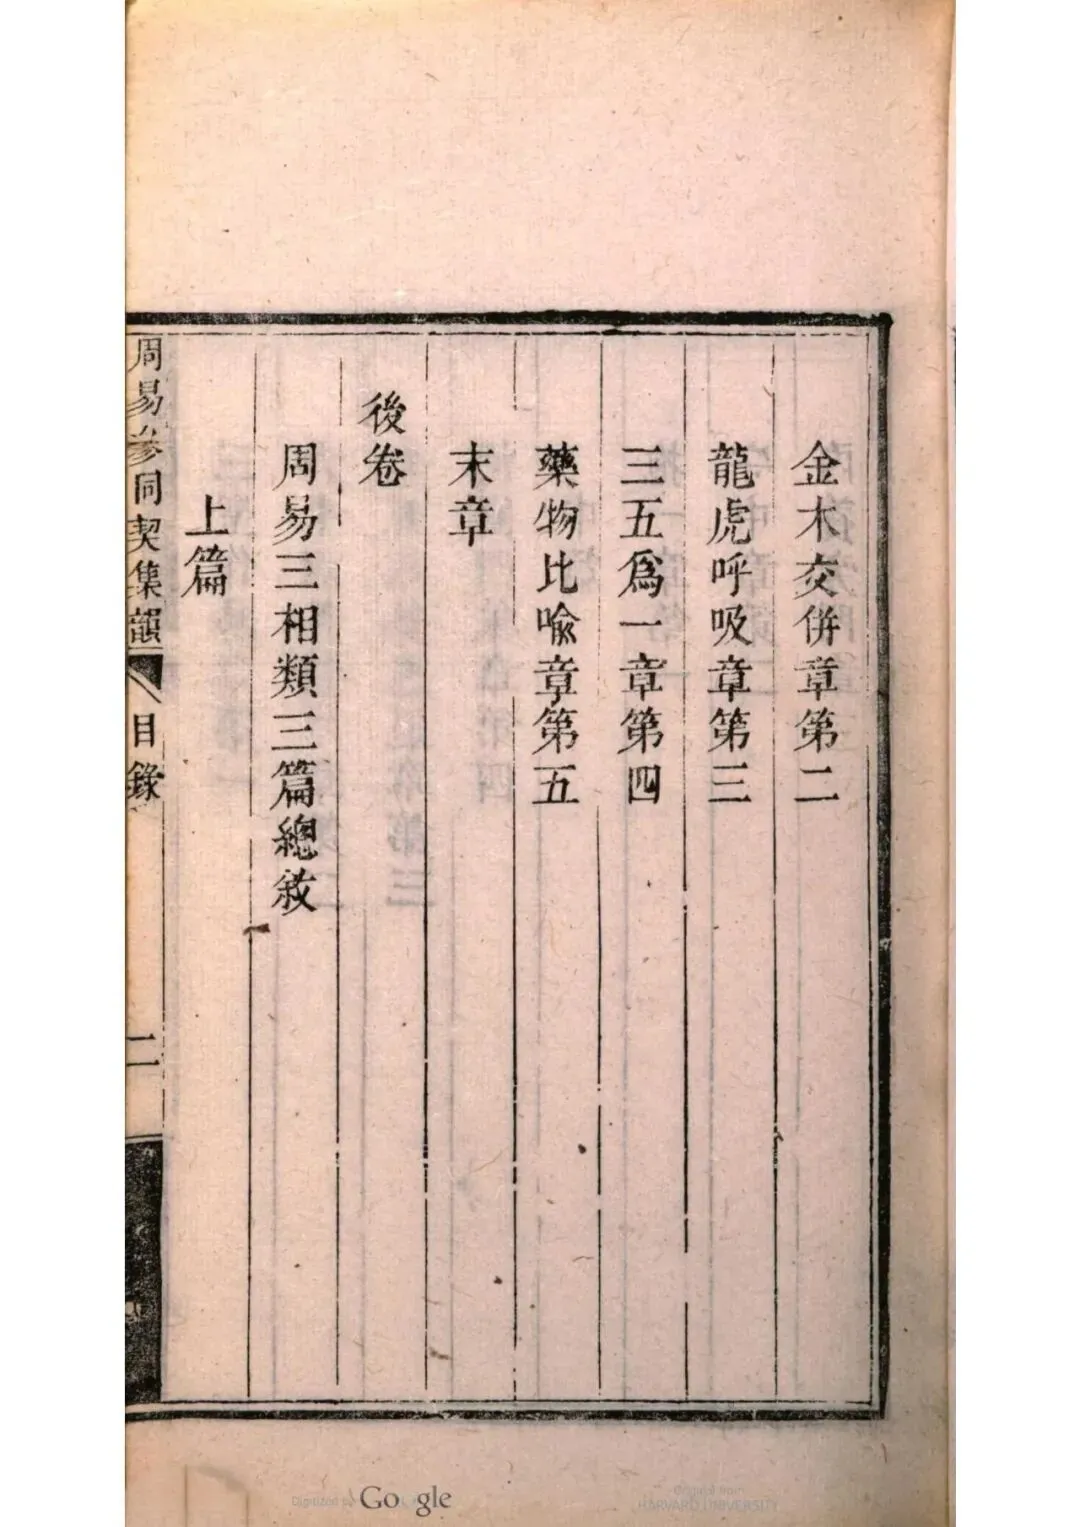 金木交併章第二
龍虎呼吸章第三
三五爲一章第四
藥物比喻章第五
末章
後卷
周易三相類三篇總敘
上篇
周易參同契集韻 目錄 二
Digitized by Google
Original from
HARVARD UNIVERSITY